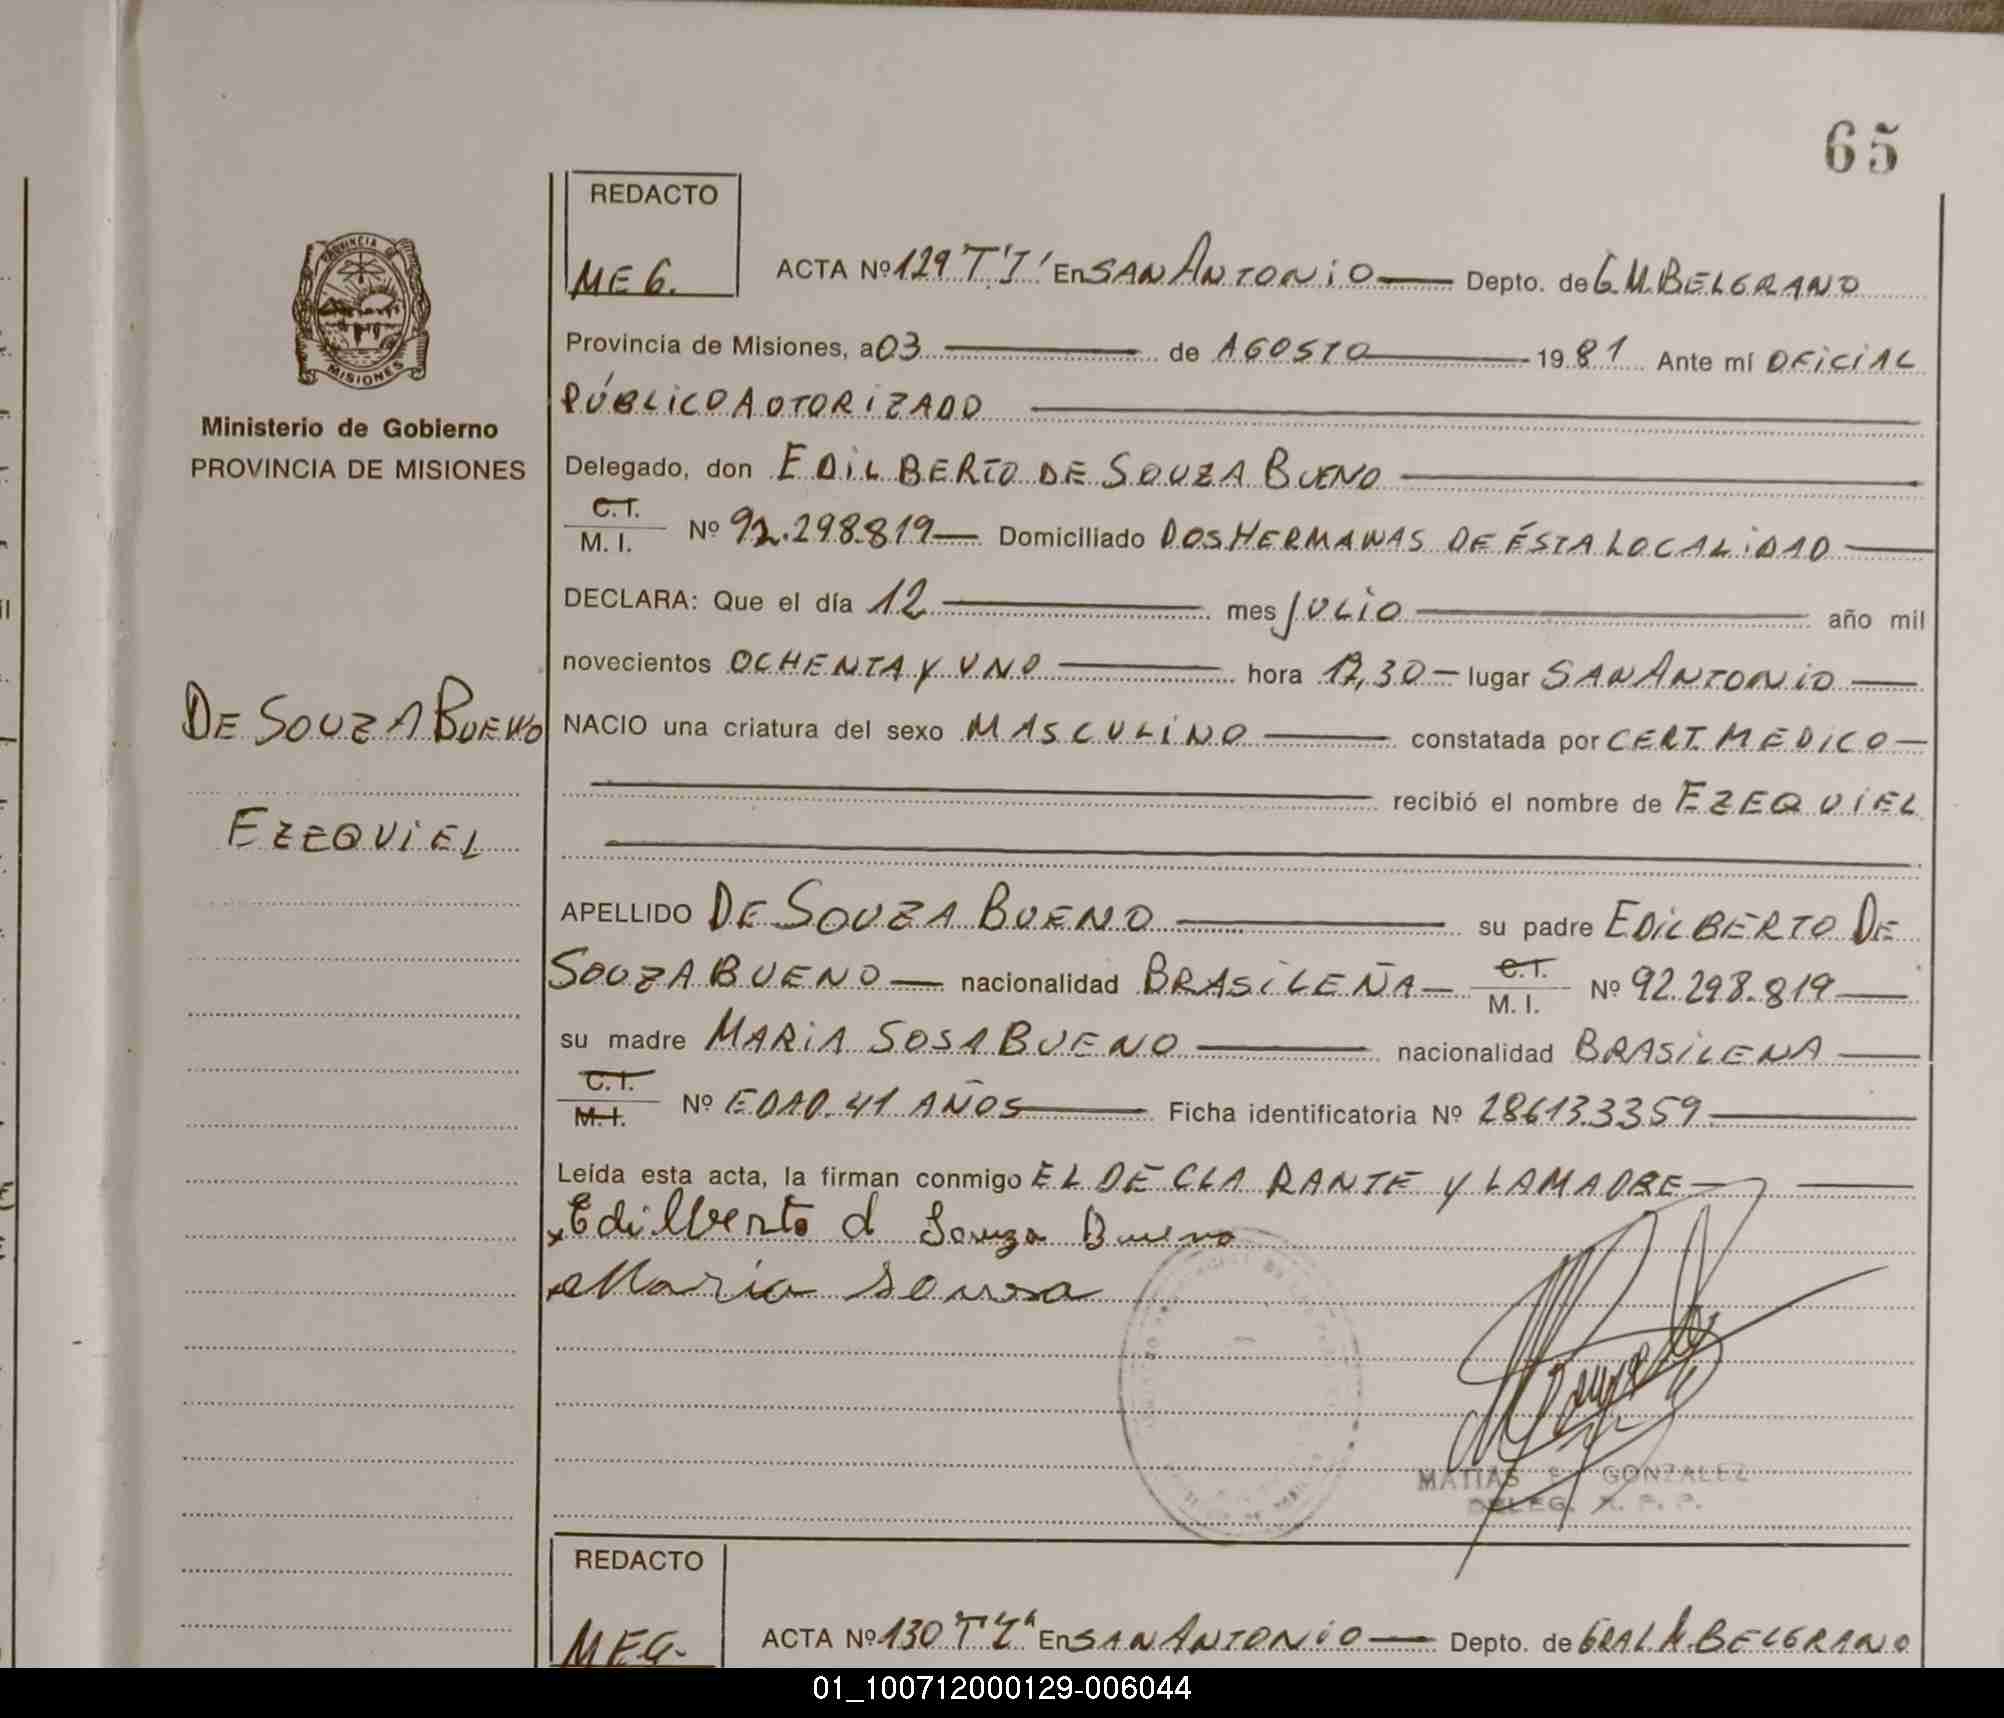 65
REDACTO
MEG.
ACTA Nº 129 T'I' En SAN ANTONIO Depto. de G.M.BELGRANO
PROVINCIA DE
MISIONES
Ministerio de Gobierno
PROVINCIA DE MISIONES
Provincia de Misiones, a 03 de AGOSTO 1981 Ante mí OFICIAL
PÚBLICO AUTORIZADO
Delegado, don EDILBERTO DE SOUZA BUENO
C.I. M. I. Nº 92.298.819 Domiciliado DOS HERMANAS DE ÉSTA LOCALIDAD
DECLARA: Que el día 12 mes JULIO año mil
novecientos OCHENTA Y UNO hora 17,30 lugar SAN ANTONIO
DE SOUZA BUENO
NACIO una criatura del sexo MASCULINO constatada por CERT. MEDICO
recibió el nombre de EZEQUIEL
EZEQUIEL
APELLIDO DE SOUZA BUENO su padre EDILBERTO DE
SOUZA BUENO nacionalidad BRASILEÑA C.I. M. I. Nº 92.298.819
su madre MARIA SOSA BUENO nacionalidad BRASILENA
C.I. M.I. Nº EDAD. 41 AÑOS Ficha identificatoria Nº 286133359
Leída esta acta, la firman conmigo EL DECLARANTE Y LA MADRE
x Edilberto d Souza Bueno
Maria Sousa
MATIAS GONZALEZ
DELEG. R. P. P.
REDACTO
MEG.
ACTA Nº 130 En SAN ANTONIO Depto. de GRAL M. BELGRANO
01_100712000129-006044